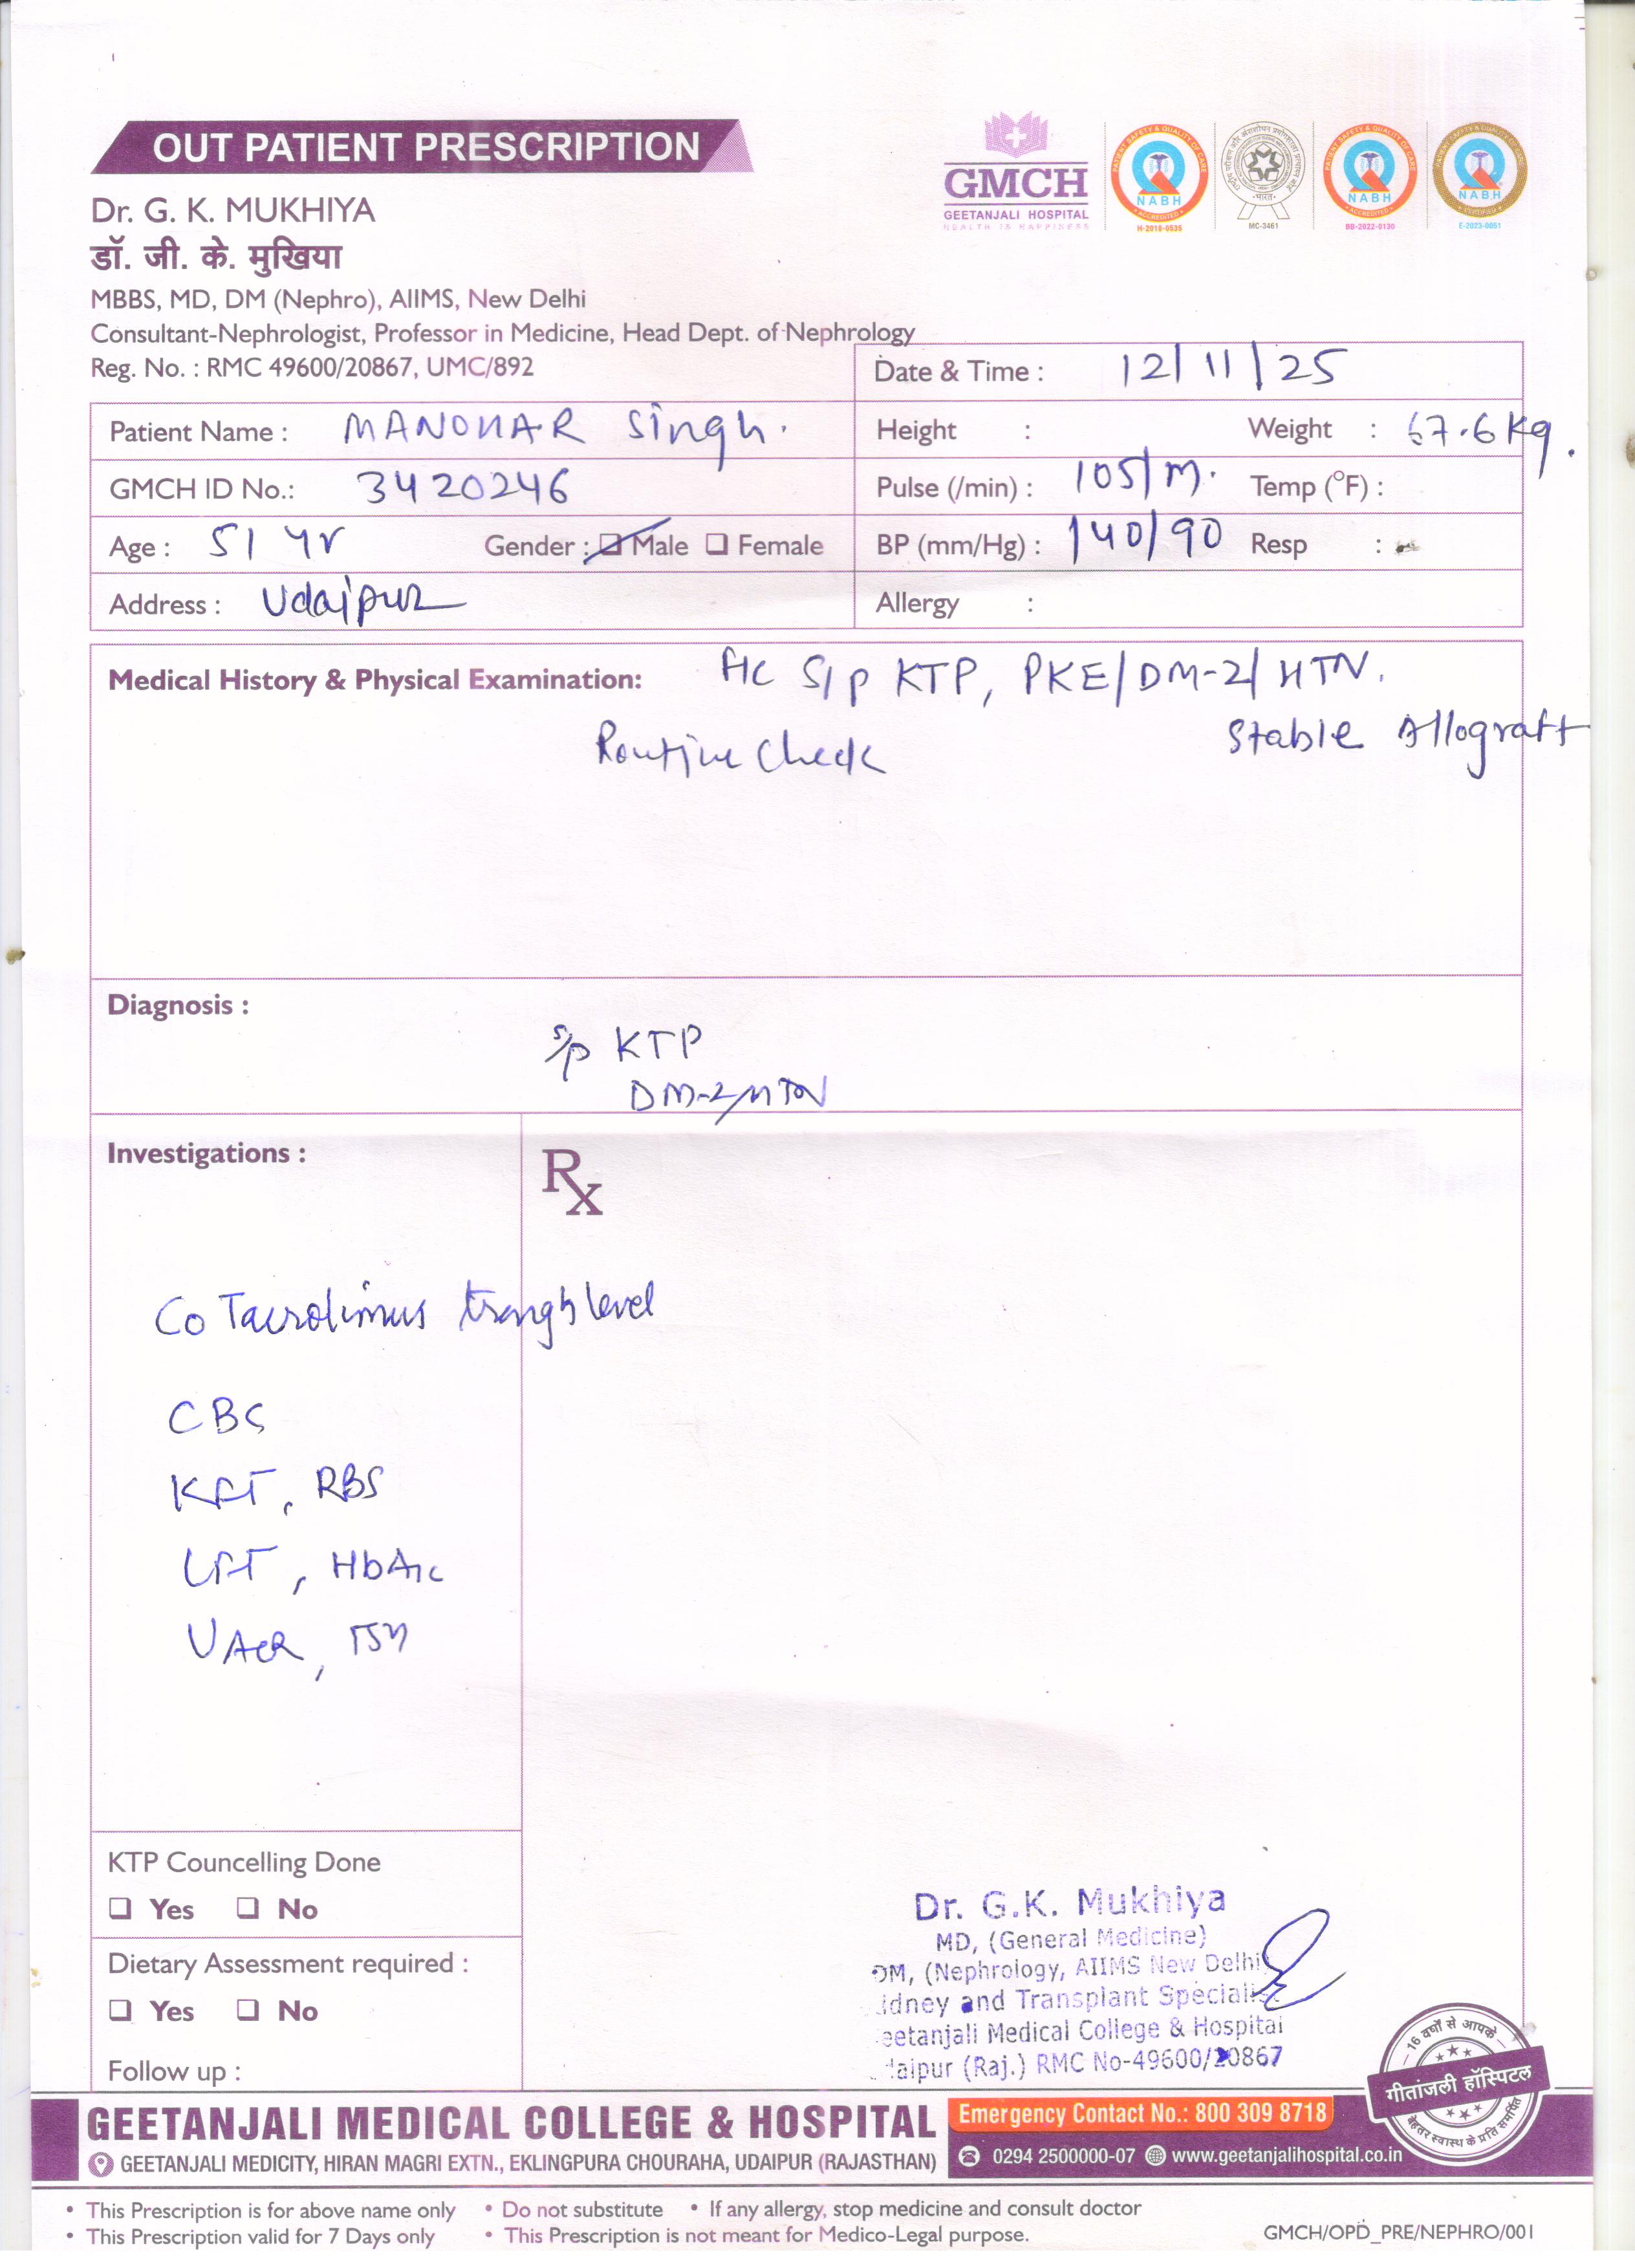 OUT PATIENT PRESCRIPTION
GMCH
GEETANJALI HOSPITAL
HEALTH IS HAPPINESS
NABH
H-2018-0535
MC-3461
NABH
BB-2022-0130
NABH
E-2023-0051
Dr. G. K. MUKHIYA
डॉ. जी. के. मुखिया
MBBS, MD, DM (Nephro), AIIMS, New Delhi
Consultant-Nephrologist, Professor in Medicine, Head Dept. of Nephrology
Reg. No. : RMC 49600/20867, UMC/892
Date & Time : 12/11/25
Patient Name : MANOHAR Singh.
Height :
Weight : 67.6 kg.
GMCH ID No.: 3420246
Pulse (/min) : 105/m.
Temp (°F) :
Age : 51 yr
Gender : Male Female
BP (mm/Hg) : 140/90
Resp :
Address : Udaipur
Allergy :
Medical History & Physical Examination:
S/p KTP, PKE/DM-2/HTN.
Stable Allograft
Routine Check
Diagnosis :
S/p KTP
DM-2/HTN
Investigations :
Rx
Co Tacrolimus trough level
CBC
KFT, RBS
LFT, HbA1c
UACR,
KTP Councelling Done
Yes No
Dietary Assessment required :
Yes No
Follow up :
Dr. G.K. Mukhiya
MD, (General Medicine)
DM, (Nephrology, AIIMS New Delhi
idney and Transplant Specialist
eetanjali Medical College & Hospital
daipur (Raj.) RMC No-49600/20867
16 वर्षों से आपके
गीतांजली हॉस्पिटल
बेहतर स्वास्थ के प्रति समर्पित
GEETANJALI MEDICAL COLLEGE & HOSPITAL
Emergency Contact No.: 800 309 8718
GEETANJALI MEDICITY, HIRAN MAGRI EXTN., EKLINGPURA CHOURAHA, UDAIPUR (RAJASTHAN)
0294 2500000-07 www.geetanjalihospital.co.in
• This Prescription is for above name only • Do not substitute • If any allergy, stop medicine and consult doctor
• This Prescription valid for 7 Days only • This Prescription is not meant for Medico-Legal purpose.
GMCH/OPD_PRE/NEPHRO/001